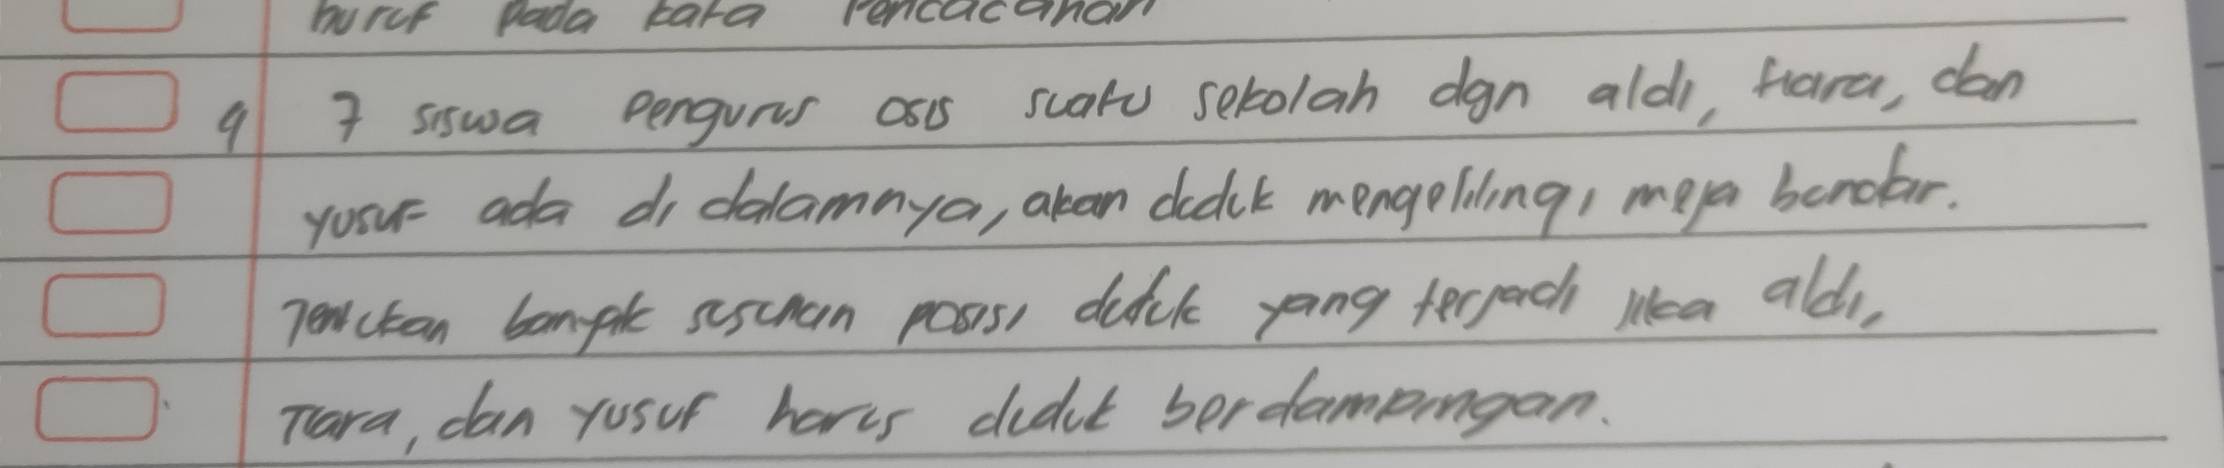 huruf pada kata Pencacahan
9 7 siswa pengurus osis suatu sekolah dgn aldi, tiara, dan
yusuf ada di dalamnya, akan duduk mengelilingi meja bundar.
Tentukan banyak susunan posisi duduk yang terjadi jika aldi,
Tiara, dan yusuf harus duduk berdampingan.